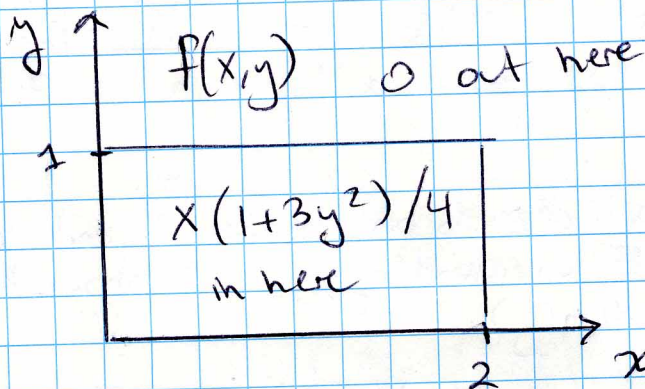 y
f(x,y) 0 out here
1
x(1+3y²)/4
in here
2
x